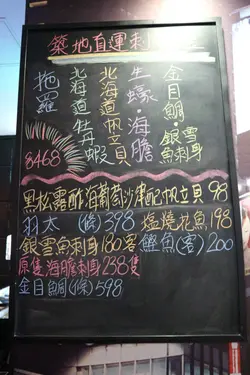 築地直運刺
金目鯛・銀雪魚刺身
生蠔・海膽
北海道帆立貝
北海道牡丹蝦
拖羅
$468
黑松露酢海葡萄沙津配帆立貝 98
羽太(條)398 短燒花魚198
銀雪魚刺身180客 鰹魚(客)200
原隻海膽刺身238隻
金目鯛(條)598